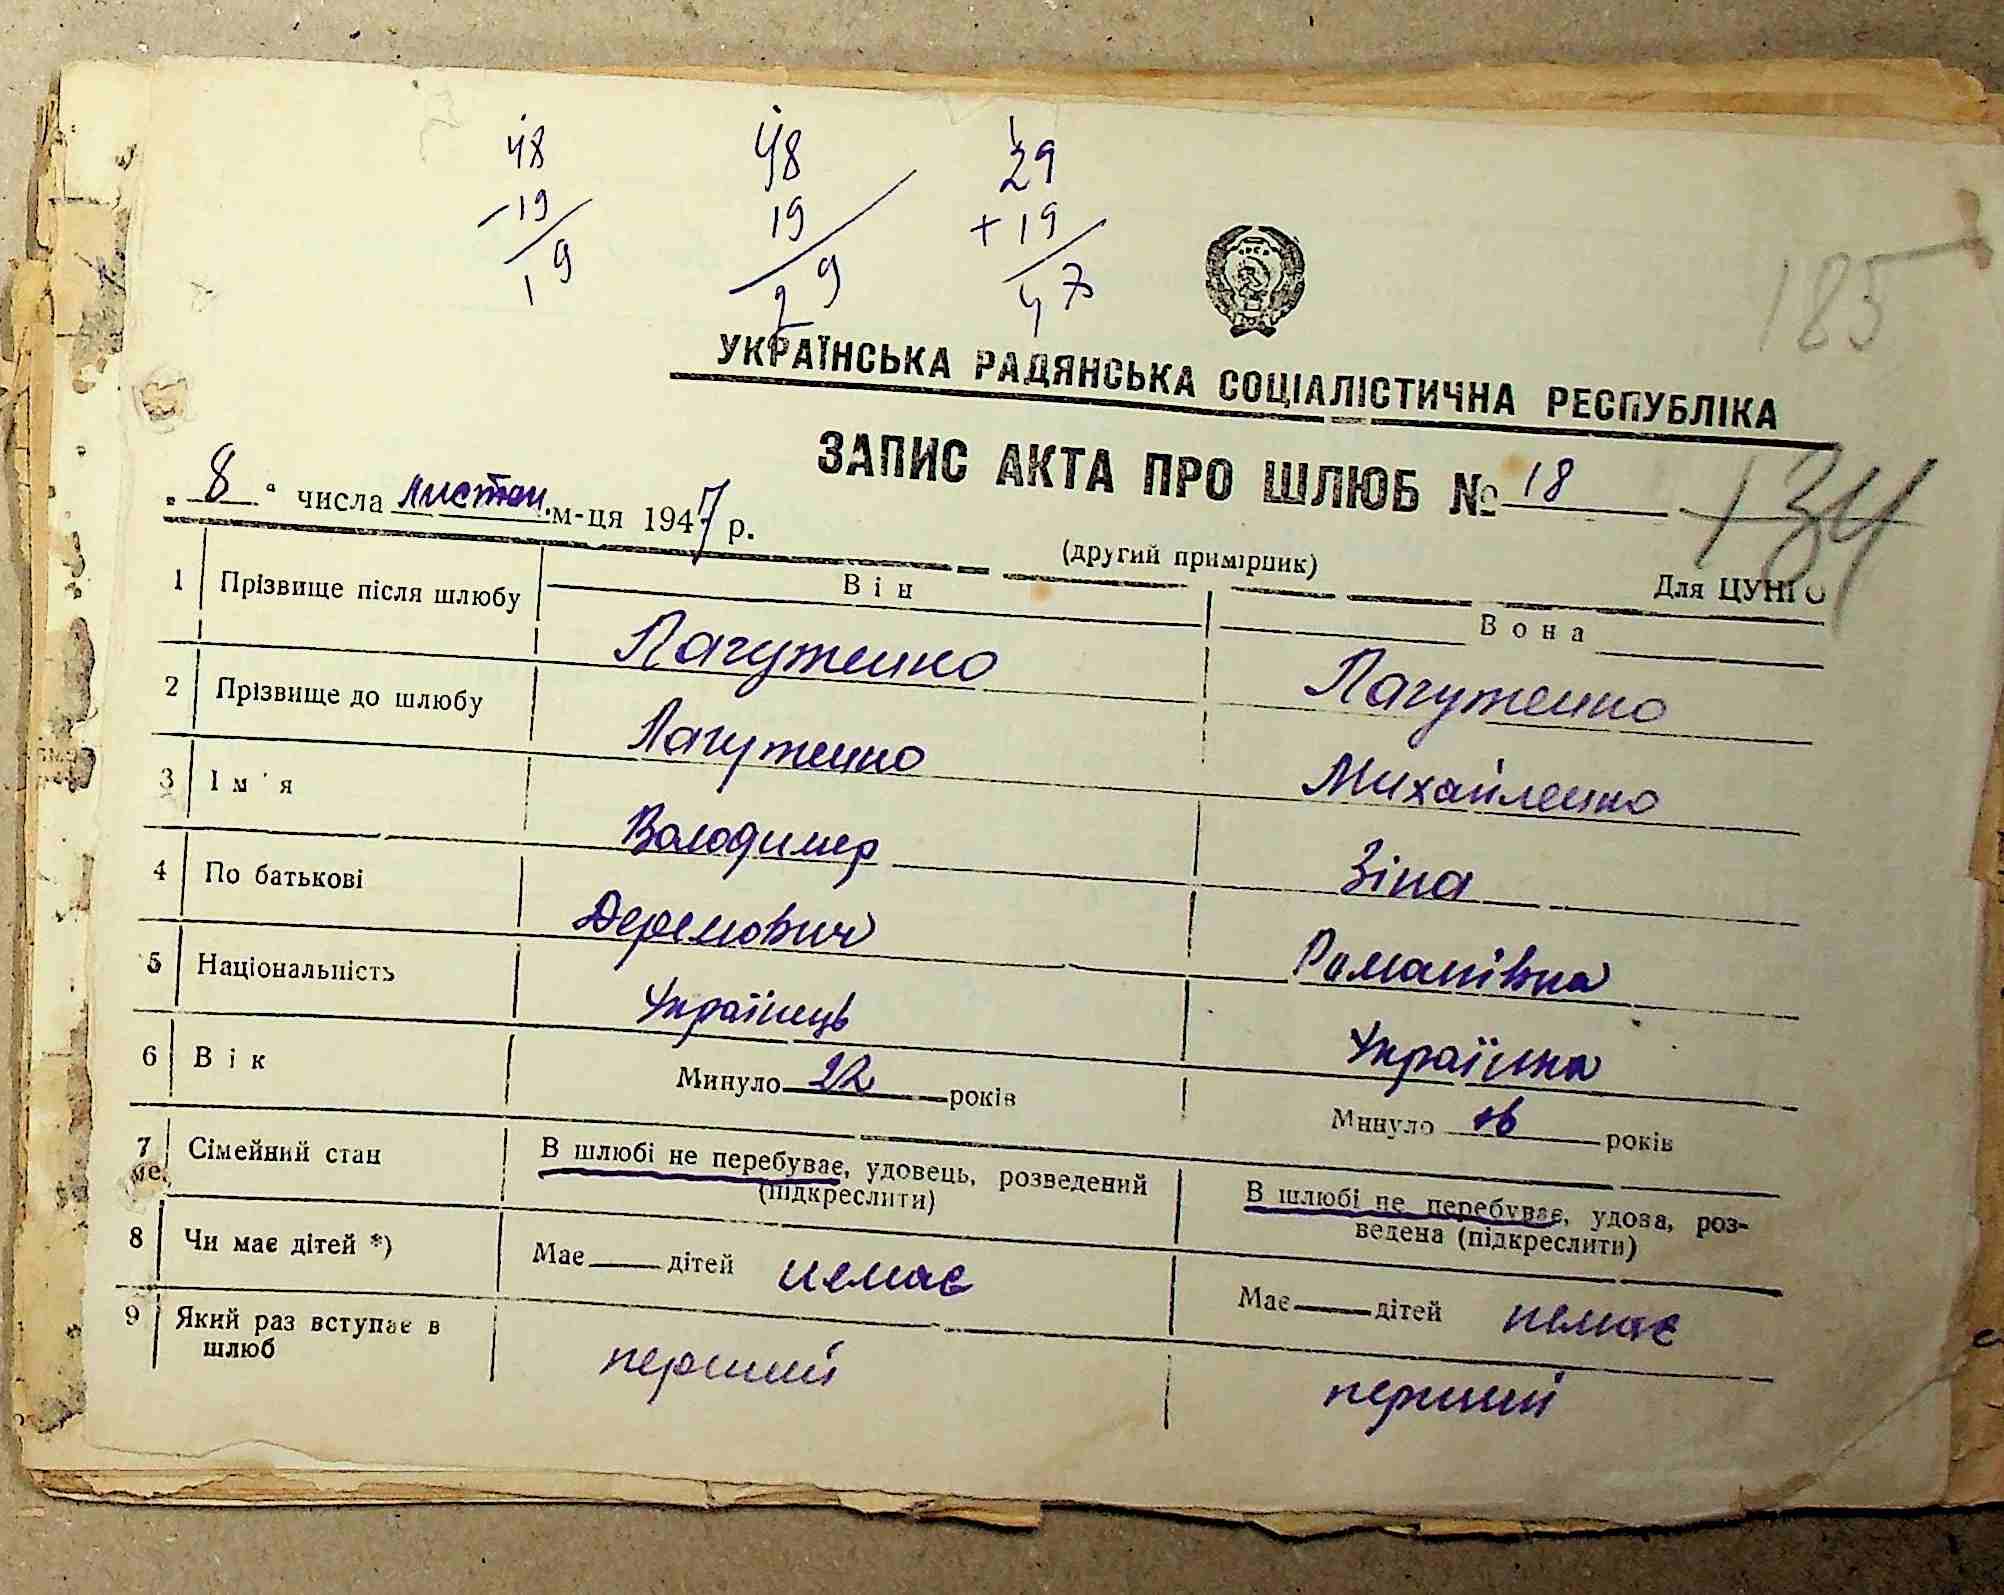 48 48 29
-19 19 + 19
19 29 47
185
УКРАЇНСЬКА РАДЯНСЬКА СОЦІАЛІСТИЧНА РЕСПУБЛІКА
ЗАПИС АКТА ПРО ШЛЮБ № 18
134
„ 8 “ числа листоп. м-ця 1947 р.
(другий примірник)
Для ЦУНГО
Він Вона
1 Прізвище після шлюбу Лагутенко Лагутенко
2 Прізвище до шлюбу Лагутенко Михайленко
3 Ім'я Володимер Зіна
4 По батькові Романівна
5 Національність Українець Українка
6 Вік Минуло 22 років Минуло років
7 Сімейний стан В шлюбі не перебуває, удовець, розведений (підкреслити) В шлюбі не перебуває, удова, роз-
ведена (підкреслити)
8 Чи має дітей *) Має дітей немає Має дітей немає
9 Який раз вступає в
шлюб перший перший